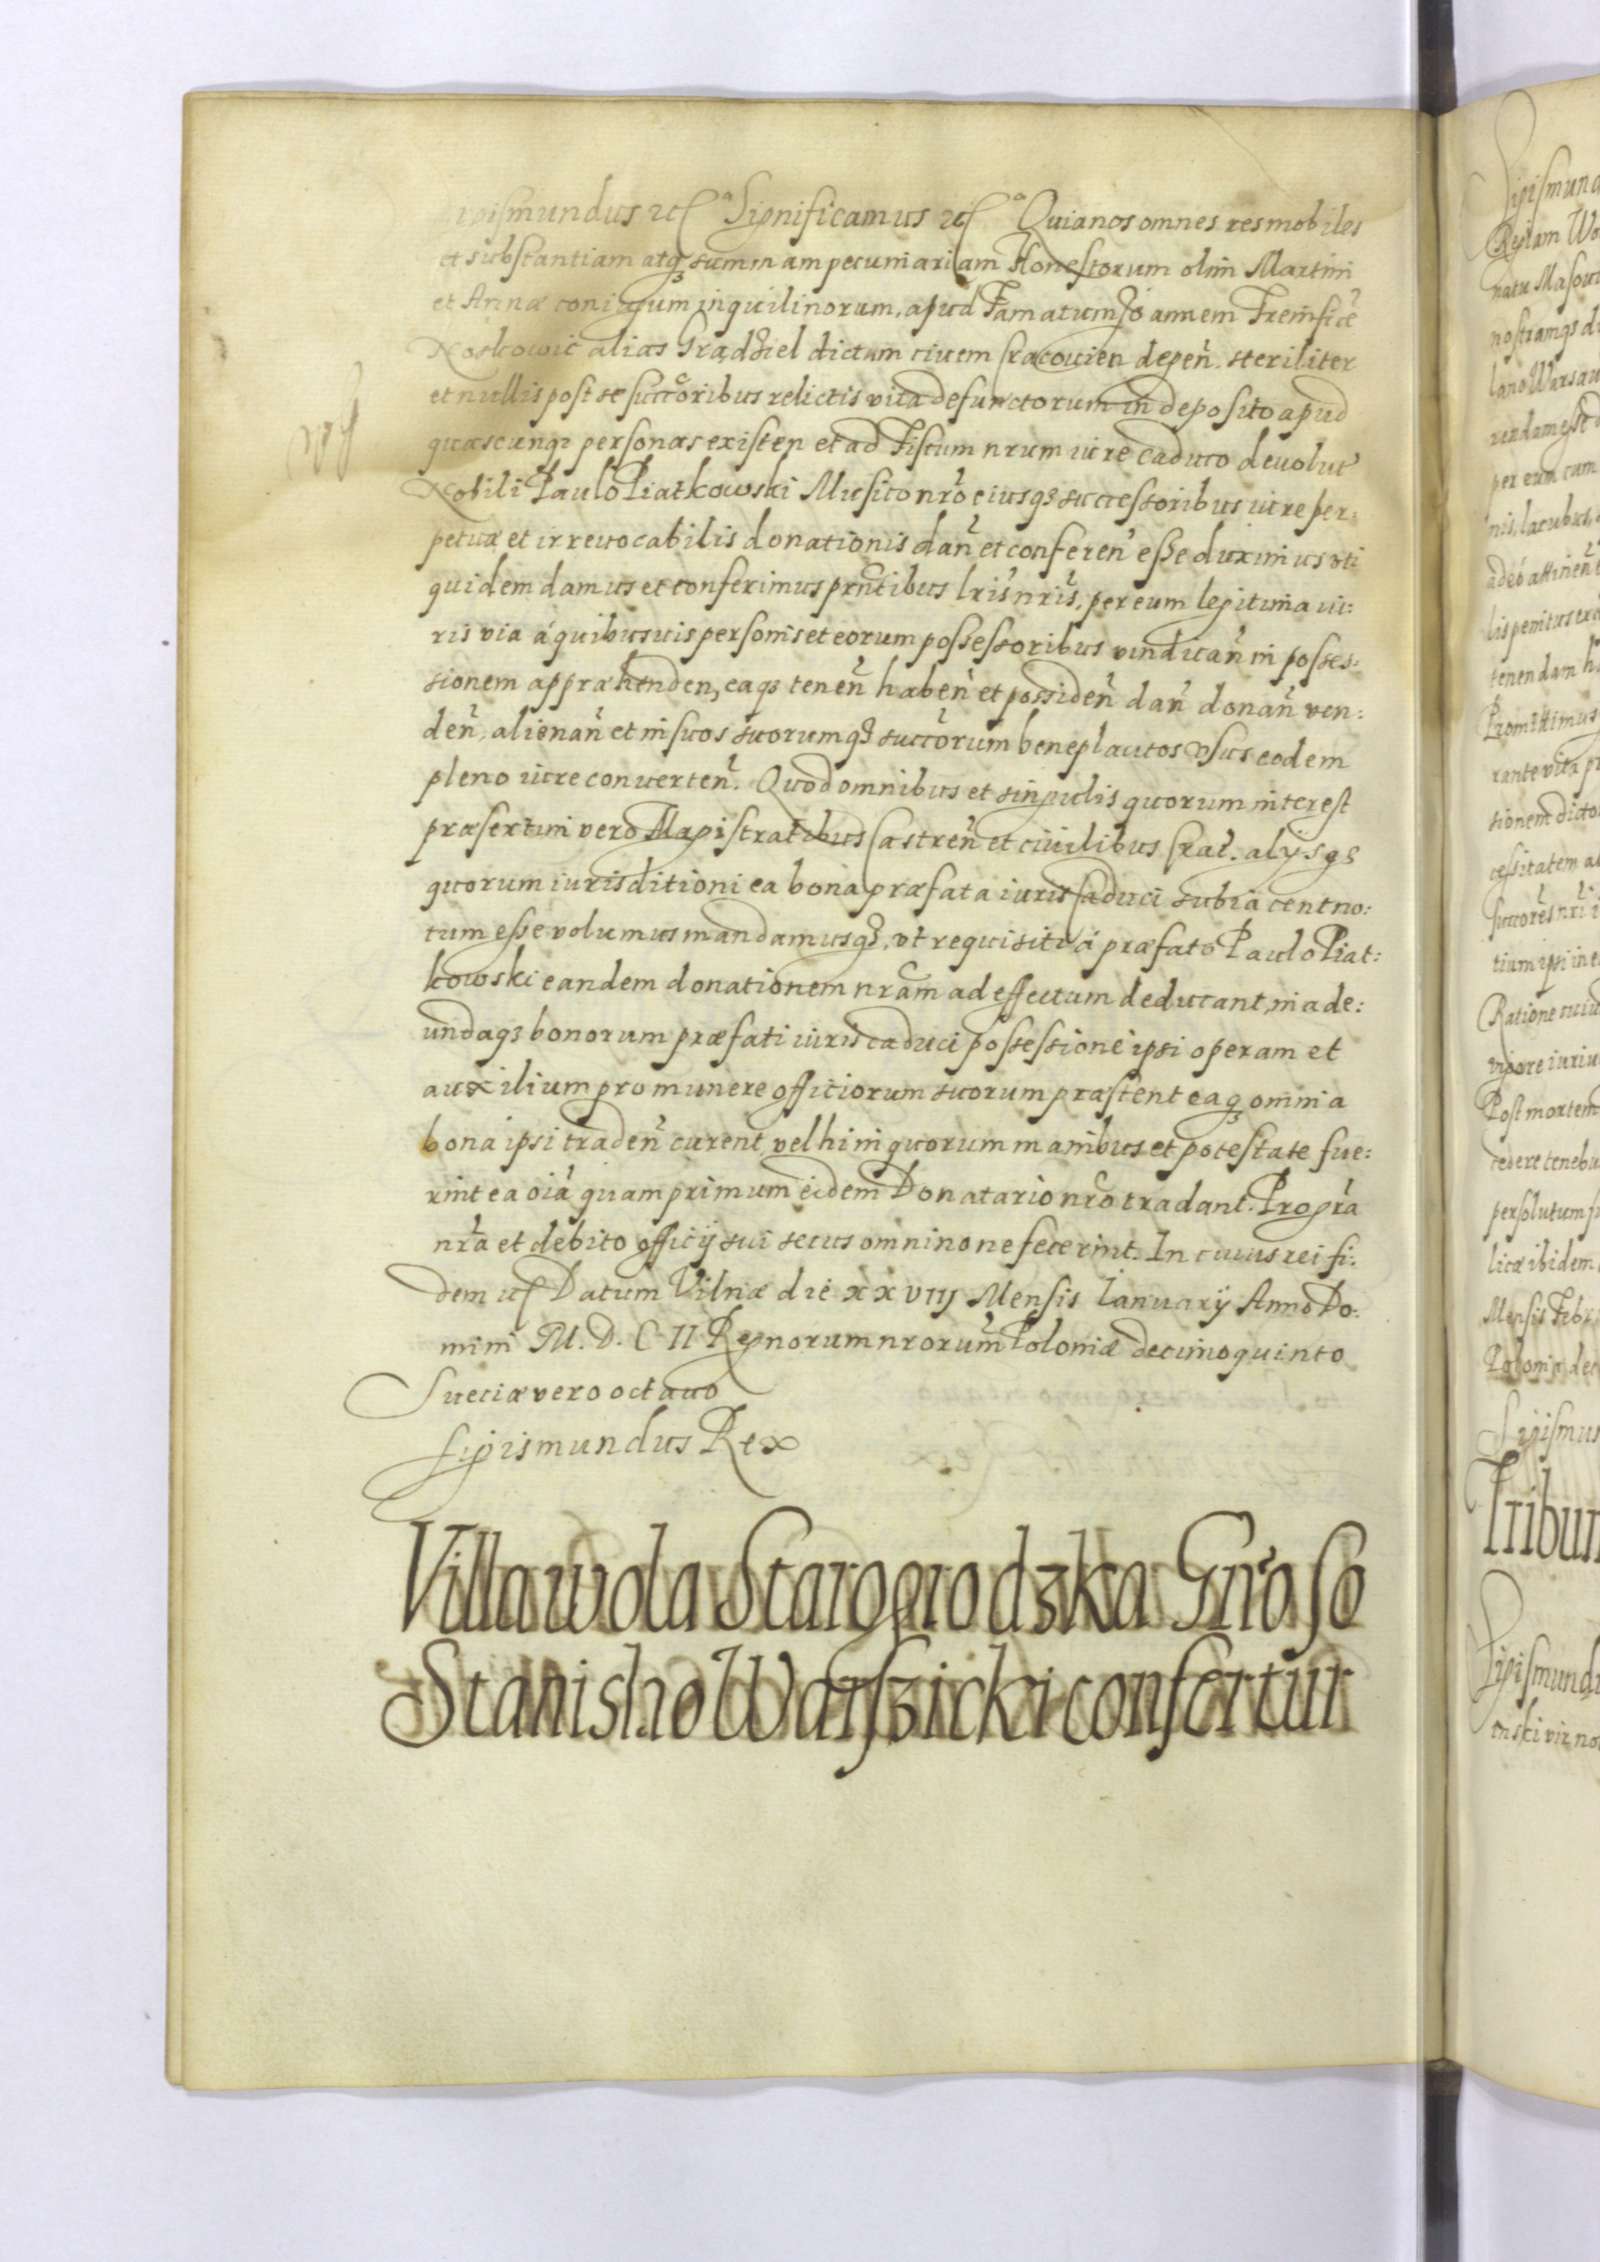 Sigismundus etc. Significamus etc. Quia nos omnes res mobiles
et substantiam atq3 summam pecuniariam Honestorum olim Martini
et Annæ coniugum inquilinorum, apud Famatum Joannem
Noskowic alias Gradziel dictum ciuem Cracouien degeñ. steriliter
et nullis post se succoribus relictis vita defunctorum in deposito apud
quascunq3 personas existeñ et ad Fiscum nrum iure caduco deuolut
Nobili Paulo Piatkowski Musico nro eiusq3 successoribus iure per:
petuæ et irreuocabilis donationis dañ et confereñ esse duximus vti
quidem damus et conferimus prntibus lris nris, per eum legitima iu:
ris via á quibusuis personis et eorum possessoribus vindicañ in posses:
sionem appræhendeñ, eaq3 teneñ habeñ et possideñ dañ donañ ven:
deñ, alienañ et in suos suorumq3 succorum beneplacitos vsus eodem
pleno iure conuerteñ. Quod omnibus et singulis quorum interest
præsertim vero Magistratibus Castreñ et ciuilibus Crac. alÿsq3
quorum iurisditioni ea bona præfata iuris caduci subiacent no:
tum esse volumus mandamusq3, vt requisiti á præfato Paulo Piat:
kowski eandem donationem nram ad effectum deducant, in ade:
undaq3 bonorum præfati iuris caduci possessione ipsi operam et
auxilium pro munere officiorum suorum præstent eaq3 omnia
bona ipsi tradeñ curent, vel hi in quorum manibus et potestate fue:
rint ea oia quamprimum eidem Donatario nro tradant. Pro gra
nra et debito officÿ sui secus omnino ne fecerint. In cuius rei fi:
dem etc. Datum Vilnæ die XXVIII Mensis JanuarÿAnno Do:
mini M.D.C.II Regnorum nrorum Poloniæ decimoquinto
Sueciæ vero octauo
Sigismundus Rex
Villa Wola Starogrodzka Gnroso
Stanislao Warszicki confertur